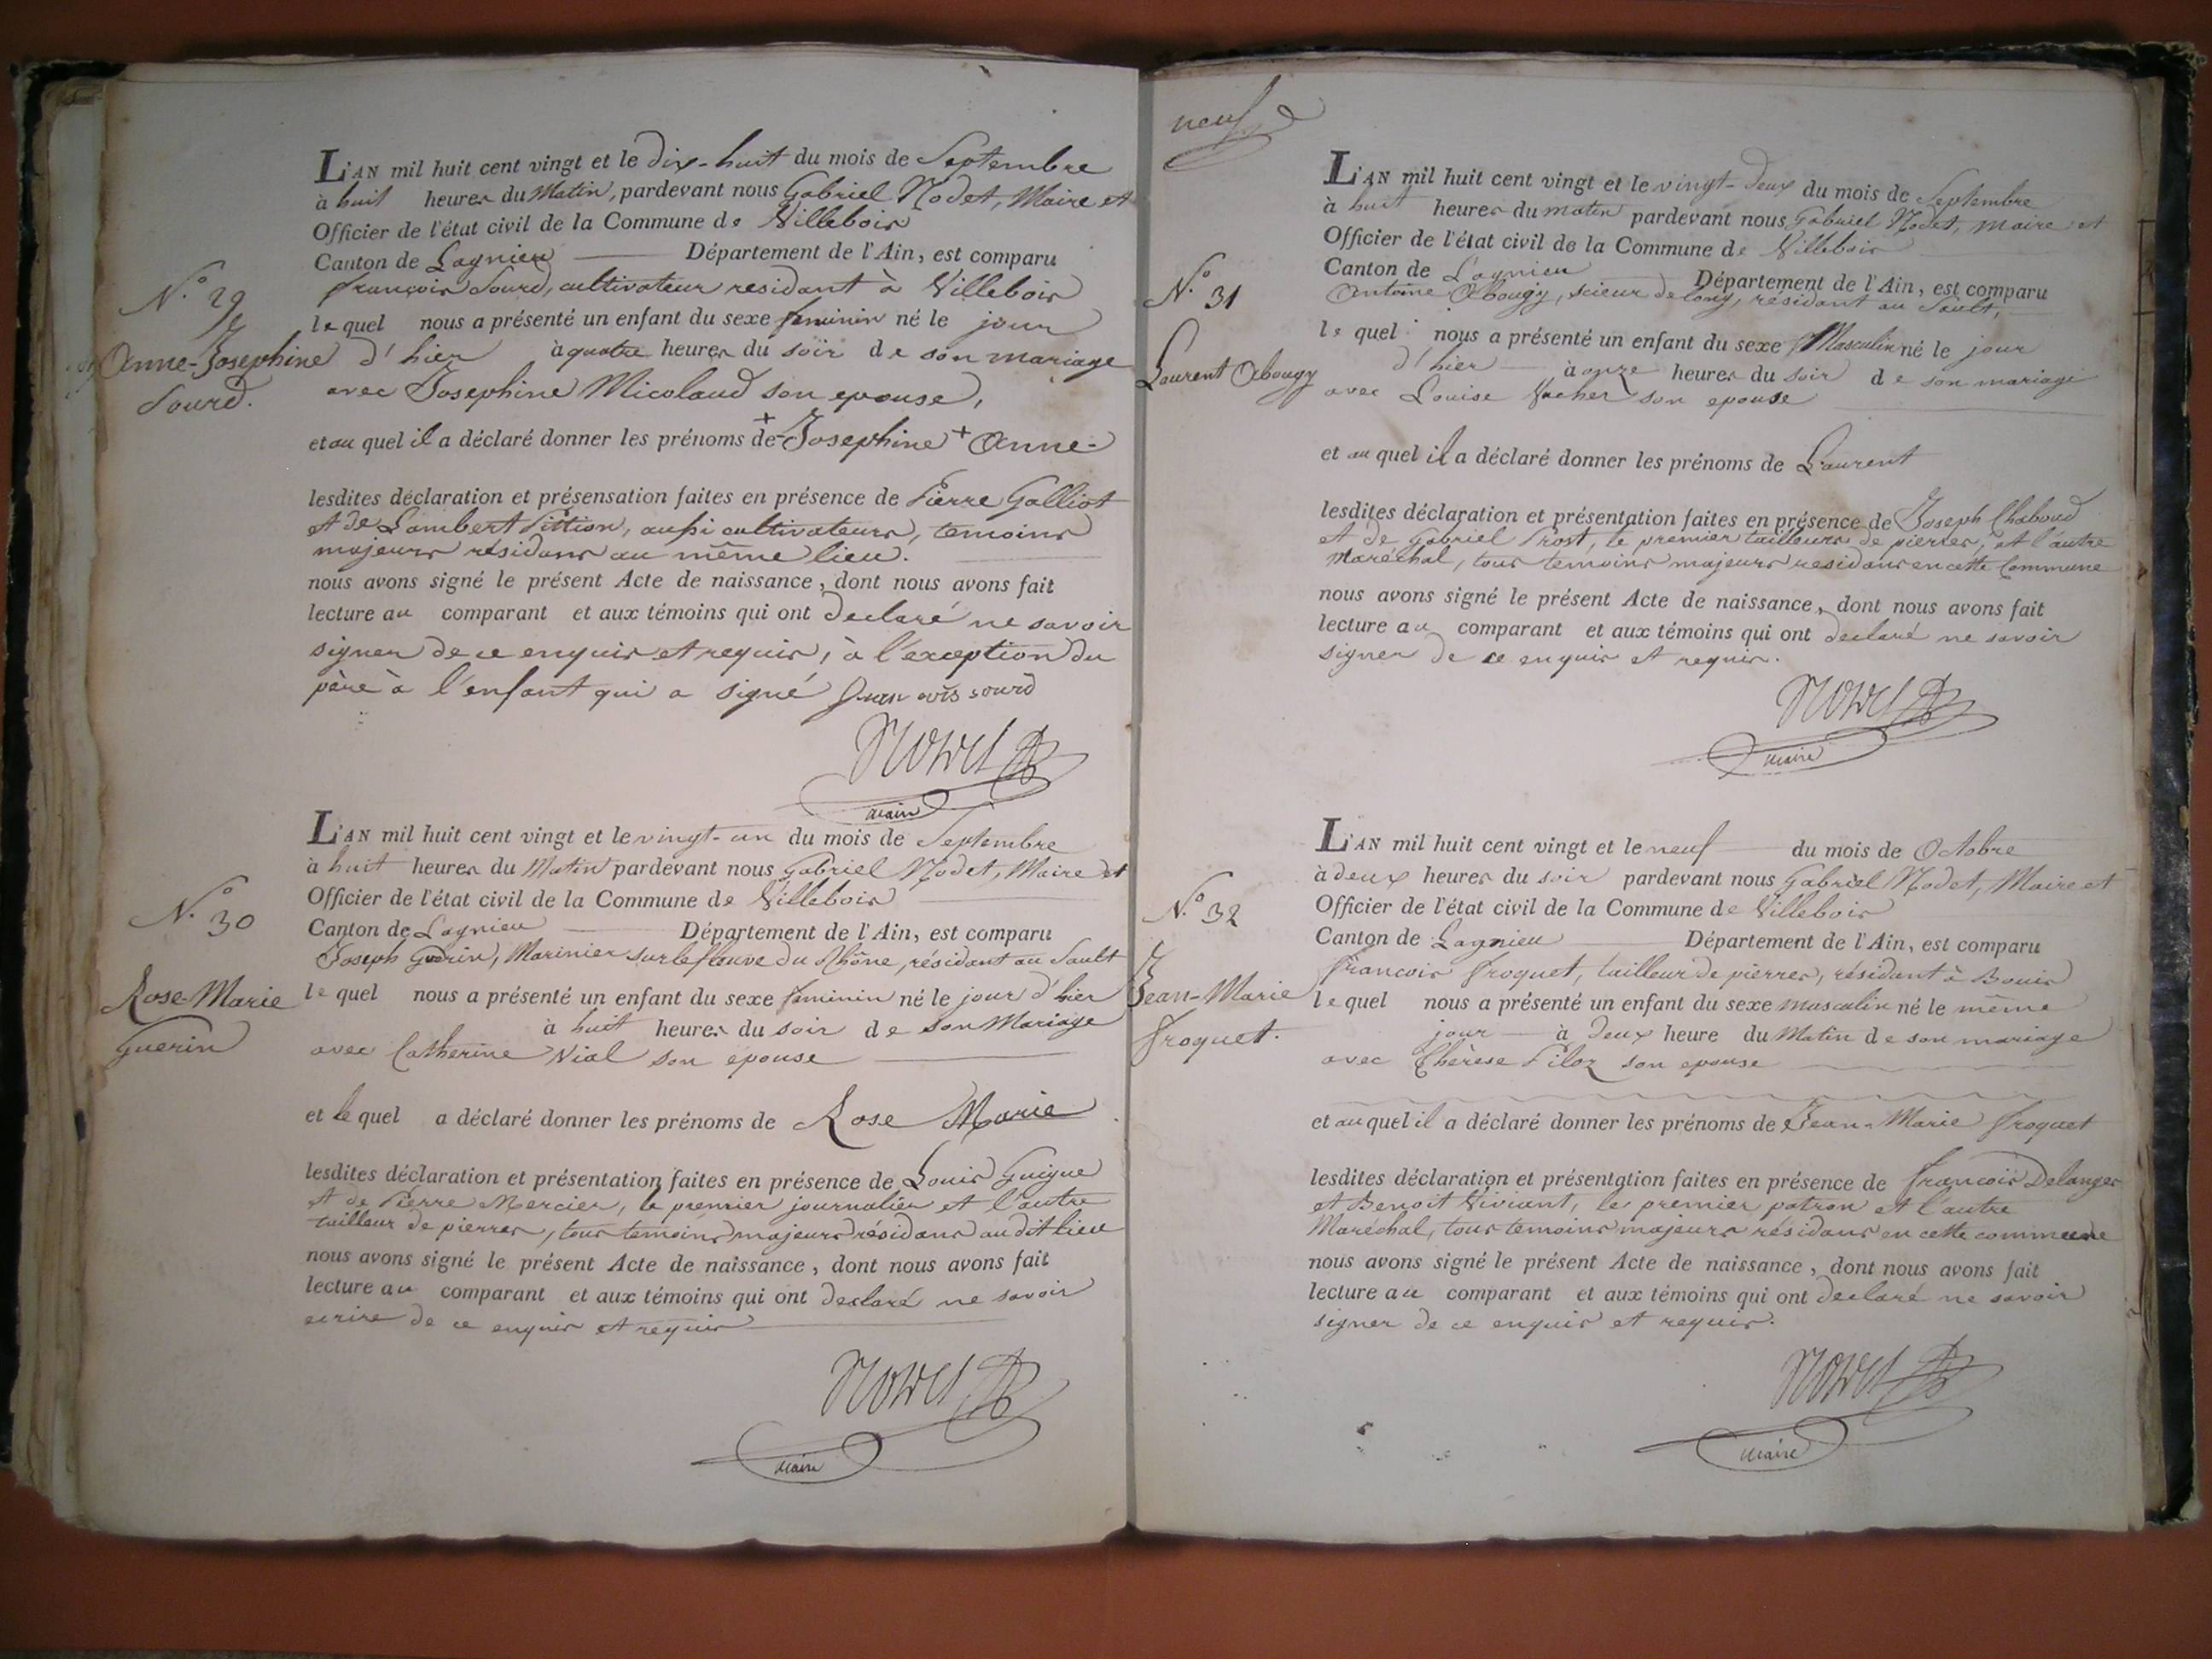 L'AN mil huit cent vingt et le dix-huit du mois de Septembre
à huit heures du Matin, pardevant nous Gabriel Nodet, Maire et
Officier de l'état civil de la Commune de Villebois
Canton de Lagnieu Département de l'Ain, est comparu
françois Sourd, cultivateur residant à Villebois
le quel nous a présenté un enfant du sexe feminin né le jour
d'hier à quatre heures du soir de son mariage
avec Josephine Micolaud son epouse,
et au quel il a déclaré donner les prénoms de + Josephine + Anne-
lesdites déclaration et présensation faites en présence de Pierre Galliot
et de Lambert Pittion, aussi cultivateurs, temoins
majeurs résidans au même lieu.
nous avons signé le présent Acte de naissance, dont nous avons fait
lecture au comparant et aux témoins qui ont declaré ne savoir
signer de ce enquis et requis, à l'exception du
père à l'enfant qui a signé fran ois sourd
Nodet
maire
N.° 29
Anne-Josephine
Sourd.
L'AN mil huit cent vingt et le vingt-un du mois de Septembre
à huit heures du Matin pardevant nous Gabriel Nodet, Maire et
Officier de l'état civil de la Commune de Villebois
Canton de Lagnieu Département de l'Ain, est comparu
Joseph Guérin, Marinier sur le fleuve du Rhône, résidant au Sault
le quel nous a présenté un enfant du sexe feminin né le jour d'hier
à huit heures du soir de son Mariage
avec Catherine Vial son epouse
et le quel a déclaré donner les prénoms de Rose Marie
lesdites déclaration et présentation faites en présence de Louis Guigue
et de Pierre Mercier, le premier journalier et l'autre
tailleur de pierres, tous temoins majeurs résidans au dit lieu
nous avons signé le présent Acte de naissance, dont nous avons fait
lecture au comparant et aux témoins qui ont declaré ne savoir
ecrire de ce enquis et requis
Nodet
maire
N.° 30
Rose-Marie
Guerin
neuf
L'AN mil huit cent vingt et le vingt-deux du mois de Septembre
à huit heures du matin pardevant nous Gabriel Nodet, maire et
Officier de l'état civil de la Commune de Villebois
Canton de Lagnieu Département de l'Ain, est comparu
Antoine Abougy, scieur de long, résidant au Sault,
le quel nous a présenté un enfant du sexe Masculin né le jour
d'hier à onze heures du soir de son mariage
avec Louise Vacher son epouse
et au quel il a déclaré donner les prénoms de Laurent
lesdites déclaration et présentation faites en présence de Joseph Chaboud
et de Gabriel Prost, le premier tailleurs de pierres, et l'autre
Maréchal, tous temoins majeurs residans en cette Commune
nous avons signé le présent Acte de naissance, dont nous avons fait
lecture au comparant et aux témoins qui ont declaré ne savoir
signer de ce enquis et requis.
Nodet
maire
N.° 31
Laurent Abougy
L'AN mil huit cent vingt et le neuf du mois de Octobre
à deux heures du soir pardevant nous Gabriel Nodet, Maire et
Officier de l'état civil de la Commune de Villebois
Canton de Lagnieu Département de l'Ain, est comparu
francois froquet, tailleur de pierres, résidant à Bouis
le quel nous a présenté un enfant du sexe masculin né le même
jour à deux heure du Matin de son mariage
avec Thérese Piloz son epouse
et au quel il a déclaré donner les prénoms de Jean-Marie froquet
lesdites déclaration et présentation faites en présence de francois Delanger
et Benoit Viviant, le premier patron et l'autre
Maréchal, tous temoins majeurs résidans en cette commune
nous avons signé le présent Acte de naissance, dont nous avons fait
lecture au comparant et aux témoins qui ont declaré ne savoir
signer de ce enquis et requis.
Nodet
maire
N.° 32
Jean-Marie
froquet.